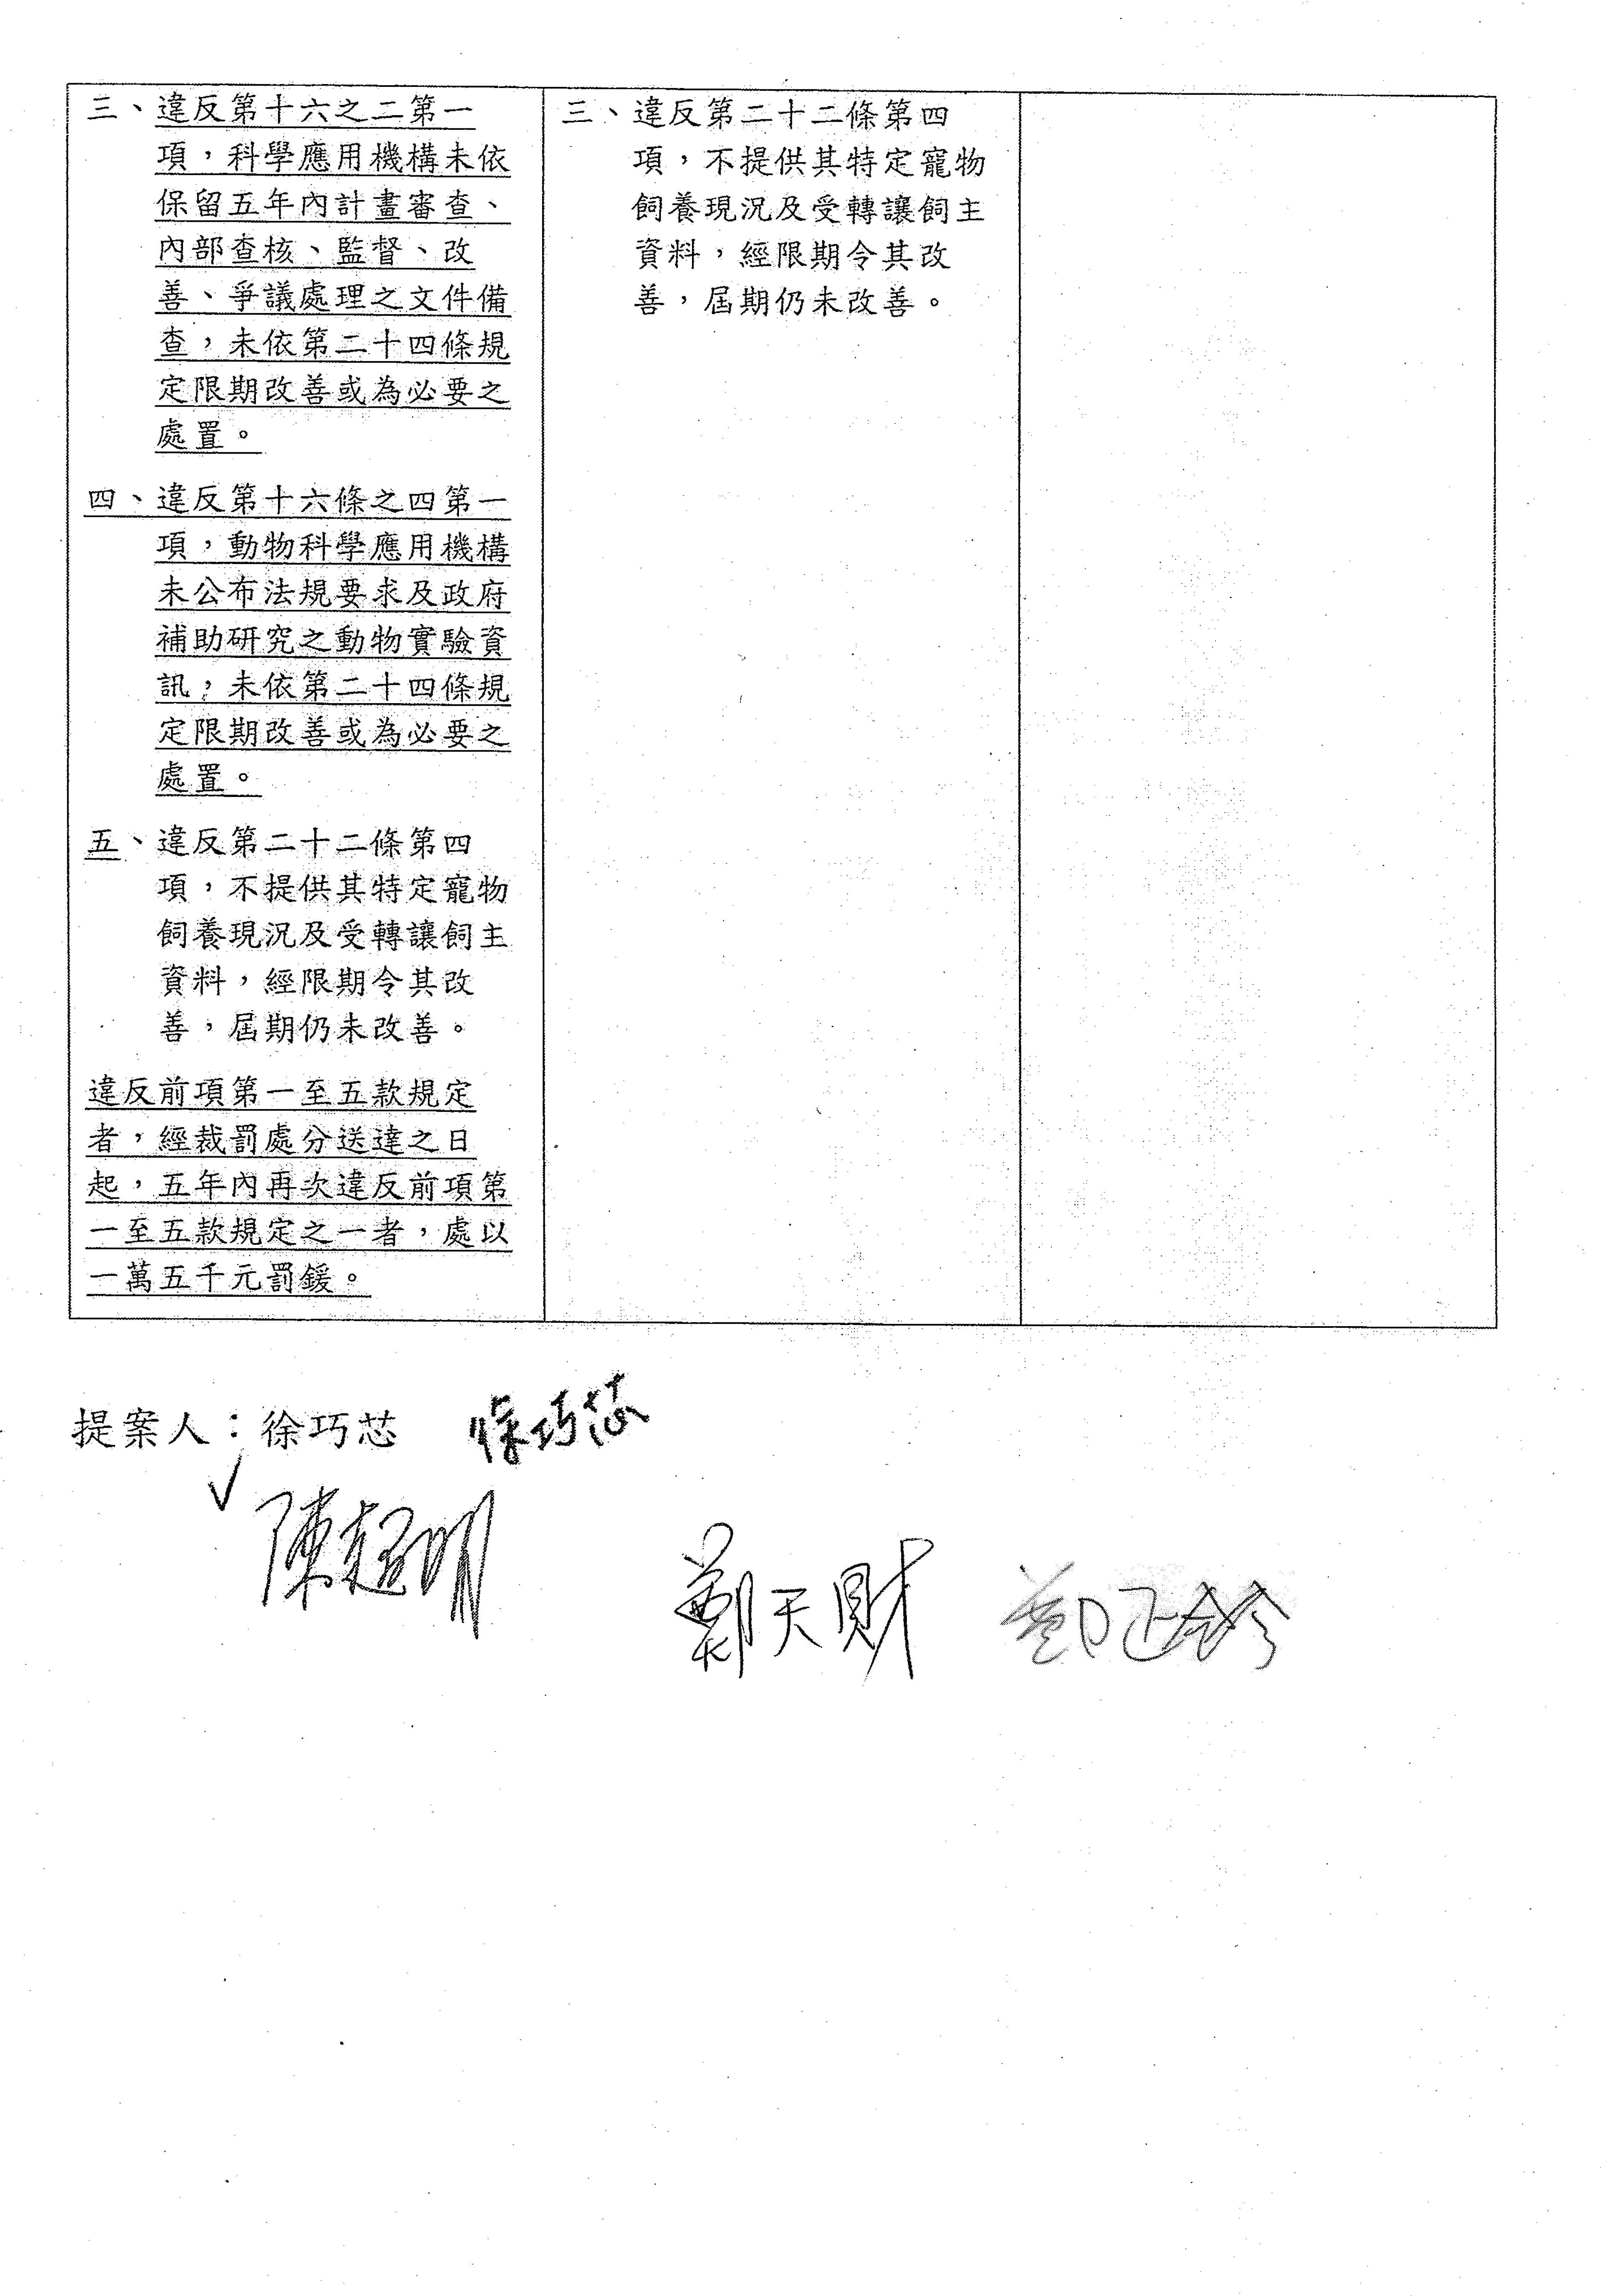 三、違反第十六之二第一
項，科學應用機構未依
保留五年內計畫審查、
內部查核、監督、改
善、爭議處理之文件備
查，未依第二十四條規
定限期改善或為必要之
處置。
四、違反第十六條之四第一
項，動物科學應用機構
未公布法規要求及政府
補助研究之動物實驗資
訊，未依第二十四條規
定限期改善或為必要之
處置。
五、違反第二十二條第四
項，不提供其特定寵物
飼養現況及受轉讓飼主
資料，經限期令其改
善，屆期仍未改善。
違反前項第一至五款規定
者，經裁罰處分送達之日
起，五年內再次違反前項第
一至五款規定之一者，處以
一萬五千元罰鍰。
三、違反第二十二條第四
項，不提供其特定寵物
飼養現況及受轉讓飼主
資料，經限期令其改
善，屆期仍未改善。
提案人：徐巧芯 徐巧芯
陳超明
鄭天財 鄭正鈐